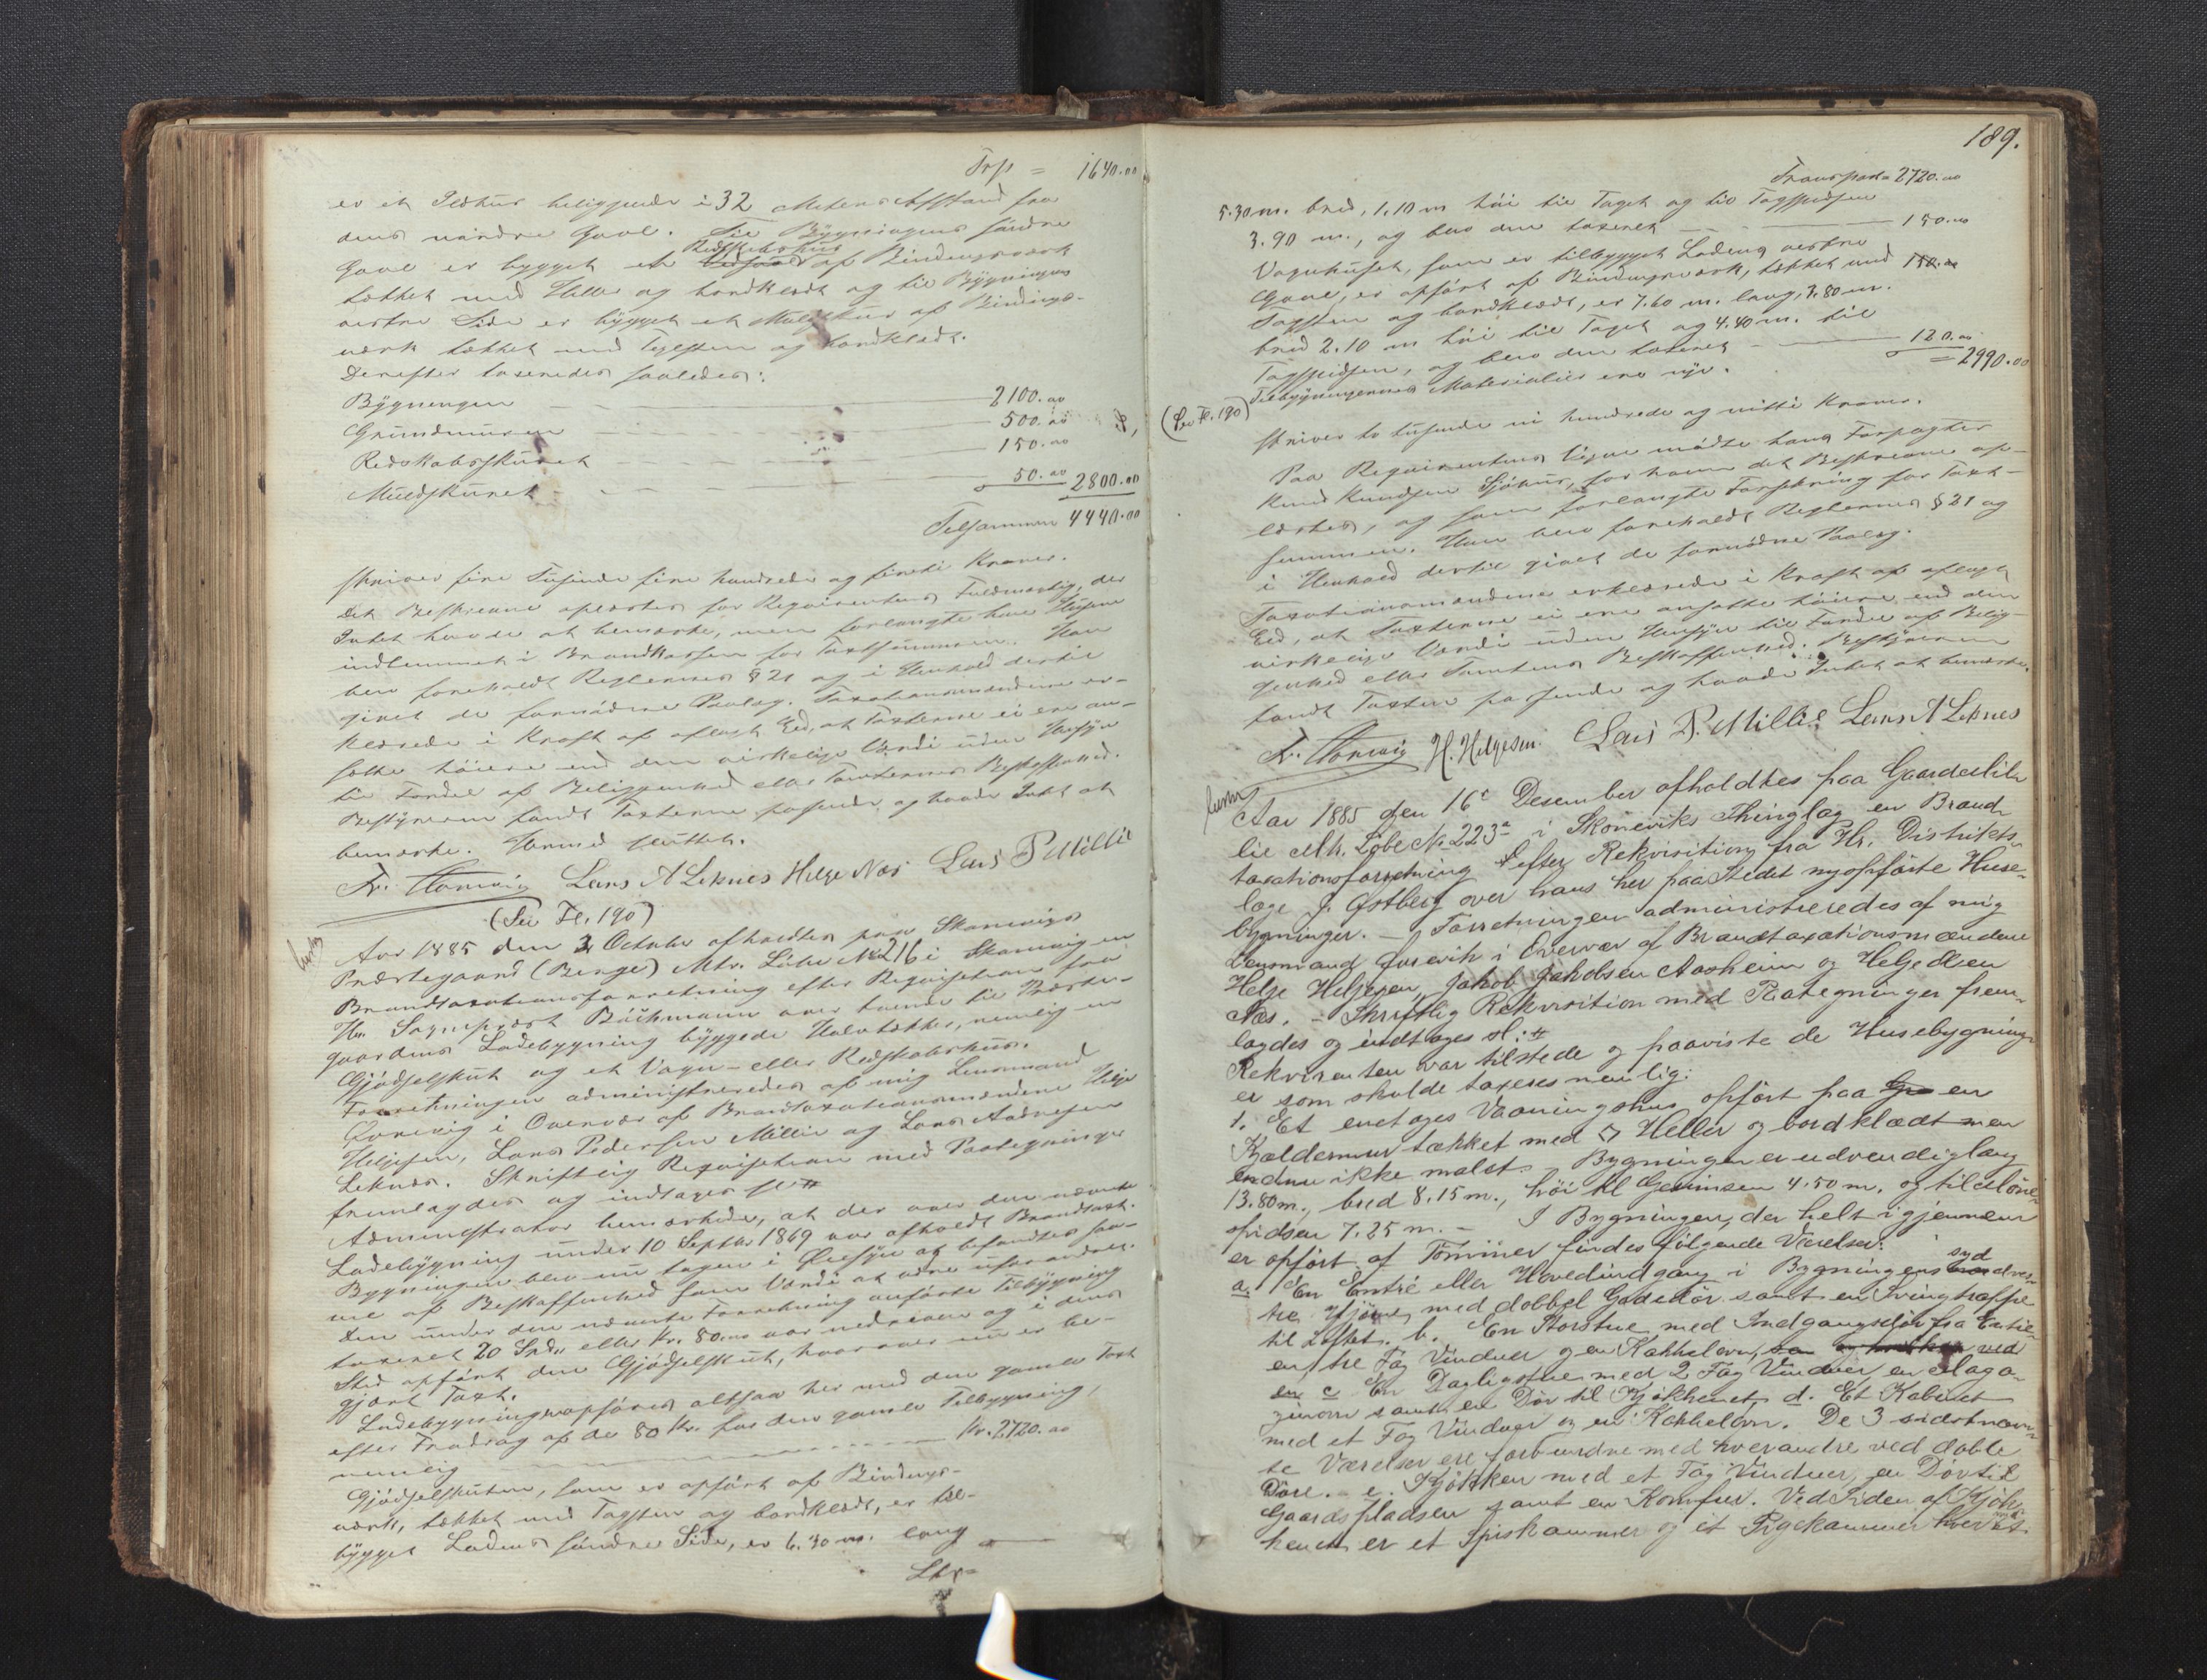 Trsp = 1640.00
er et Ildhus beliggende i 32 Meters Afstand fra
dens nordre Gavl. Til Bygningens søndre
Redskabshus
Gavl er bygget et af Bindingsværk
tækket med Heller og bordklædt og til Bygningens
vestre Side er bygget et Muldskur af Bindings-
værk tækket med Taglsten og bordklædt.
Derefter taxeredes saaledes:
Bygningen 2100.00
Grundmuren 500.00
Redskabsskuret 150.00
Muldskuret 50.00 2800.00
Tilsammen 4440.00
skriver fire Tusinde fire hundrede og firti Kroner.
Det Beskrevne oplæstes for Rqvirentens Fuldmægtig, der
Intet havde at bemærke, men forlangte hans Husene
indlemmet i Brandkassen for Taxtsummen. Han
blev foreholdt Reglernes § 21 og i Henhold dertil
givet de fornødne Paalæg. Taxationsmændene er-
klærede i Kraft af aflagt Eed, at Taxterne ei ere an-
satte høiere end den virkelige Værdi uden Hensyn
til Fordel af Beliggenhed eller Tomternes Beskaffenhed.
Bestyreren fandt Taxterne passende og havde Intet at
bemærke. Hermed sluttet.
Lars A Leknes Helge Næs Lars P Millie
(See Fl. 190)
Aar 1885 den 3 October afholdtes paa Skonevigs
Præstegaard (Berge) Mtr. Løbe No 216 i Skonevig en
Brandtaxationsforretning efter Reqvisition fra
Hr. Sognepræst Böckmann over tvende til Præste-
gaardens Ladebygning byggede Halvtækker, nemlig en
Gjødselskut og et Vogn- eller Redskabshus.
Forretningen administreredes af mig Lensmand
i Overvær af Brandtaxationsmændene Helge
Helgesen, Lars Pedersen Millie og Lars Andresen
Leknes. Skriftlig Reqvisition med Paategninger
fremlagdes og indtages sl. #
Administrator bemærkede, at der over den nævnte
Ladebygning under 10 Septbr 1869 var afholdt Brandtaxt.
Bygningen blev nu tagen i Øiesyn og befandtes saa-
vel af Beskaffenhed som Værdi at være uforandret.
Den under den nævnte Forretning anførte Tilbygning
taxeret 20 Spd. eller Kr. 80.00 var nedreven og i dens
Sted opført den Gjødselskut, hvorover nu er be-
gjært Taxt.
Ladebygningen opføres altsaa her med den gamle Taxt
efter Fradrag af de 80 Kr. for den gamle Tilbygning,
nemlig Kr. 2720.00
Gjødselskuten, som er opført af Bindings-
værk, tækket med Tagsten og bordklædt, er til-
bygget Ladens søndre Side, er 6.30 m. lang
Lbr=
189.
Transport = 2720.00
5.30 m. bred, 1.10 m høi til Taget og til Tagspidsen
3.90 m., og blev den taxeret 150.00
Vognhuset, som er tilbygget Ladens vestre
Gavl, er opført af Bindingsværk, tækket med
Tagsten og bordklædt, er 7.60 m. lang, 3.80 m.
bred 2.10 m høi til Taget og 4.40 m. til
Tagspidsen, og blev den taxeret 120.00
Tilbygningernes Materialier ere nye. = 2990.00
(See Fl. 190)
skriver to tusinde ni hundrede og nitti Kroner.
Paa Reqvirentens Vegne mødte hans Forpagter
Knud Knudsen Sjohus, for hvem det Beskrevne op-
læstes, og som forlangte Forsikring for Taxt-
summen. Han blev foreholdt Reglernes § 21 og
i Henhold dertil givet de fornødne Paalæg.
Taxationsmændene erklærede i Kraft af aflagt
Eed, at Taxterne ei ere ansatte høiere end den
virkelige Værdi uden Hensyn til Fordel af Belig-
genhed eller Tomtens Beskaffenhed. Bestyreren
fandt Taxten passende og havde Intet at bemærke.
H. Helgesen. Lars P. Millie Lars A Leknes
Aar 1885 den 16de Desember afholdtes paa Gaarden Lille
lie Mk. Løbe No 223a i Skoneviks Thinglag en Brand
taxationsforretning efter Rekvisition fra Hr. Distrikts-
læge J. Østberg over hans her paa Stedet nyopførte Huse-
bygninger. – Forretningen administreredes af mig
Lensmand i Overvær af Brandtaxationsmændene
Helge Helgesen, Jakob Jakobsen Aasheim og Helge Olsen
Næs. – Skriftlig Rekvisition med Paategninger frem-
lagdes og indtages sl. #
Rekvirenten var tilstede og paaviste de Husebygning
er som skulde taxeres nemlig:
1. Et enetages Vaaningshus opført paa en
Kjældermur tækket med Heller og bordklædt men
endnu ikke malet. Bygningen er udvendig lang
13.80 m., bred 8.15 m., høi til Gesimsen 4.50 m. og til Møne-
spidsen 7.25 m. – I Bygningen, der helt igjennem
er opført af Tømmer findes følgende Værelser:
a. En Entré eller Hovedindgang i Bygningens syd ves-
tre Hjørne, med dobbel Gadedør samt en Svingtrappe
til Loftet. b. En Storstue med Indgangsdør fra Entre
en, tre Fag Vinduer og en Kakkelovn,
c En Dagligstue med 2 Fag Vinduer, en Maga-
zinovn samt en Dør til Kjøkkenet, d. Et Kabinet
med et Fag Vinduer og en Kakkelovn. De 3 sidstnævn-
te Værelser ere forbundne med hverandre ved doble
Døre. – e. Kjøkken med et Fag Vinduer, en Dør til
Gaardspladsen samt en Komfur. Ved Siden af Kjøk
kenet er et Spiskammer og et Pigekammer hver